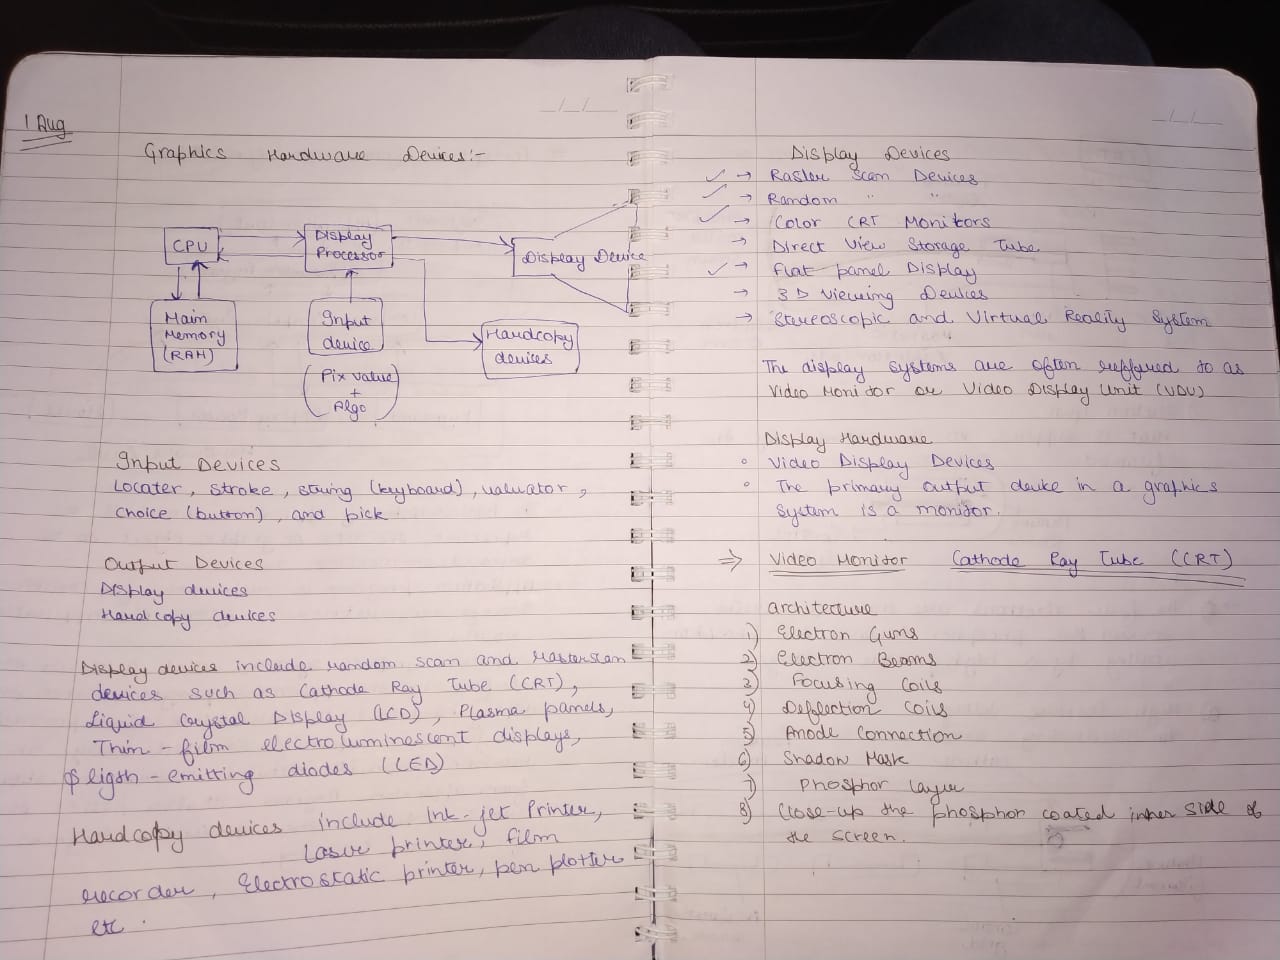 1 Aug
Graphics Hardware Devices:-
CPU
Display
Processor
Display Device
Main
Memory
(RAM)
Input
device
Hardcopy
devices
(Pix value
+
Algo)
Input Devices
Locater, stroke, string (keyboard), valuator,
choice (button), and pick
Output Devices
Display devices
Hardcopy devices
Display devices include random scan and rasterscan
devices such as Cathode Ray Tube (CRT),
Liquid Crystal Display (LCD), Plasma panels,
Thin-film electroluminescent displays,
ligth-emitting diodes (LED)
Hardcopy devices include Ink-jet Printer,
Laser printer, film
recorder, Electrostatic printer, pen plotter
etc.
Display Devices
✓ → Raster Scan Devices
✓ → Random " "
✓ → Color CRT Monitors
→ Direct View Storage Tube
✓ → Flat panel Display
→ 3D Viewing Devices
→ Stereoscopic and Virtual Reality System
The display systems are often reffered to as
Video Monitor or Video Display Unit (VDU)
Display Hardware
° Video Display Devices
° The primary output device in a graphics
System is a monitor.
⇒ Video Monitor Cathode Ray Tube (CRT)
architecture
1) Electron Guns
2) Electron Beams
3) Focusing Coils
4) Deflection Coils
5) Anode Connection
6) Shadow Mask
7) Phosphor layer
8) Close-up the phosphor coated inner side of
the screen.